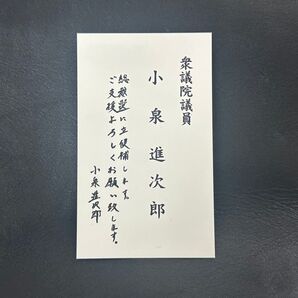 衆議院議員
小泉進次郎
総裁選に立候補します。
ご支援よろしくお願い致します。
小泉進次郎